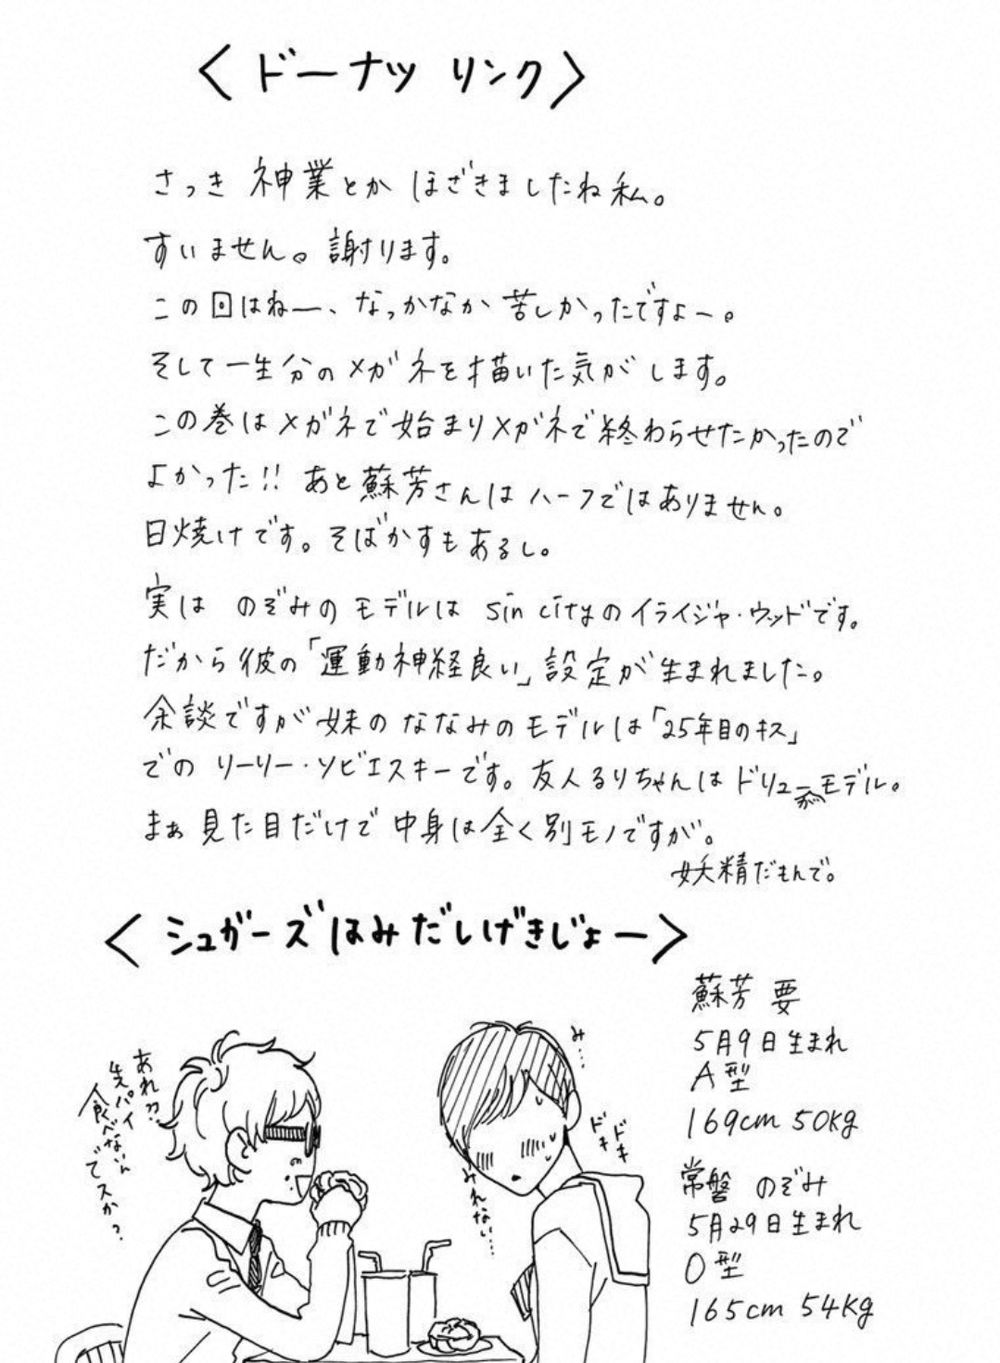 <ドーナツ リンク>
さっき 神業とか ほざきましたね私。
すいません。謝ります。
この回はねー、なっかなか 苦しかったですよー。
そして一生分のメガネを描いた気がします。
この巻はメガネで始まりメガネで終わらせたかったので
よかった!! あと蘇芳さんはハーフではありません。
日焼けです。そばかすもあるし。
実は のぞみのモデルは sin cityのイライジャ・ウッドです。
だから彼の「運動神経良い」設定が生まれました。
余談ですが妹のななみのモデルは「25年目のキス」
でのリーリー・ソビエスキーです。友人るりちゃんはドリューがモデル。
まぁ見た目だけで中身は全く別モノですが。
妖精だもんで。
<シュガーズはみだしげきじょー>
あれ??
先パイ
食べないん
でスか?
み…
ドキ
ドキ
みれない…
蘇芳 要
5月9日生まれ
A型
169cm 50kg
常磐 のぞみ
5月29日生まれ
O型
165cm 54kg